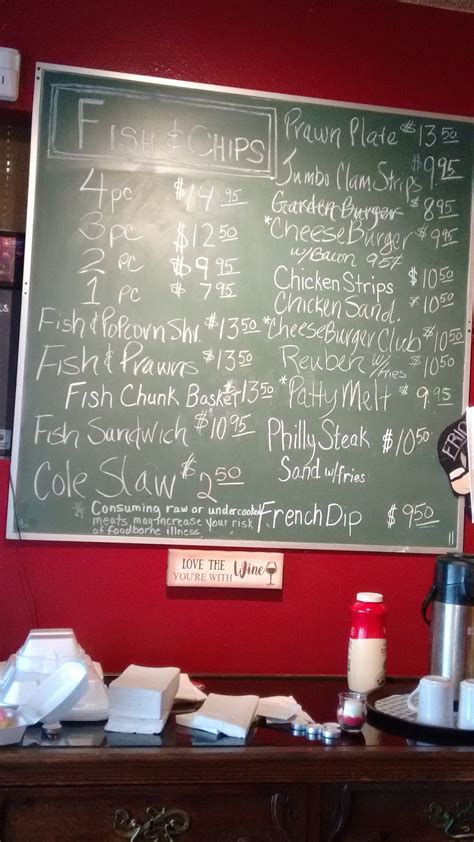 FISH & CHIPS
4pc $14.95
3pc $12.50
2 pc $9.95
1 pc $7.95
Fish & Popcorn Shr. $13.50
Fish & Prawns $13.50
Fish Chunk Basket $13.50
Fish Sandwich $10.95
Cole Slaw $2.50
* Consuming raw or undercooked
meats may increase your risk
of foodborne illness.
Prawn Plate $13.50
Jumbo Clam Strips $9.95
Garden Burger $8.95
*CheeseBurger $9.95
w/Bacon 95¢
Chicken Strips $10.50
Chicken Sand. $10.50
*CheeseBurger Club $10.50
Reuben w/fries $10.50
*Patty Melt $9.95
Philly Steak $10.50
Sand w/fries
French Dip $9.50
LOVE THE Wine
YOU'RE WITH